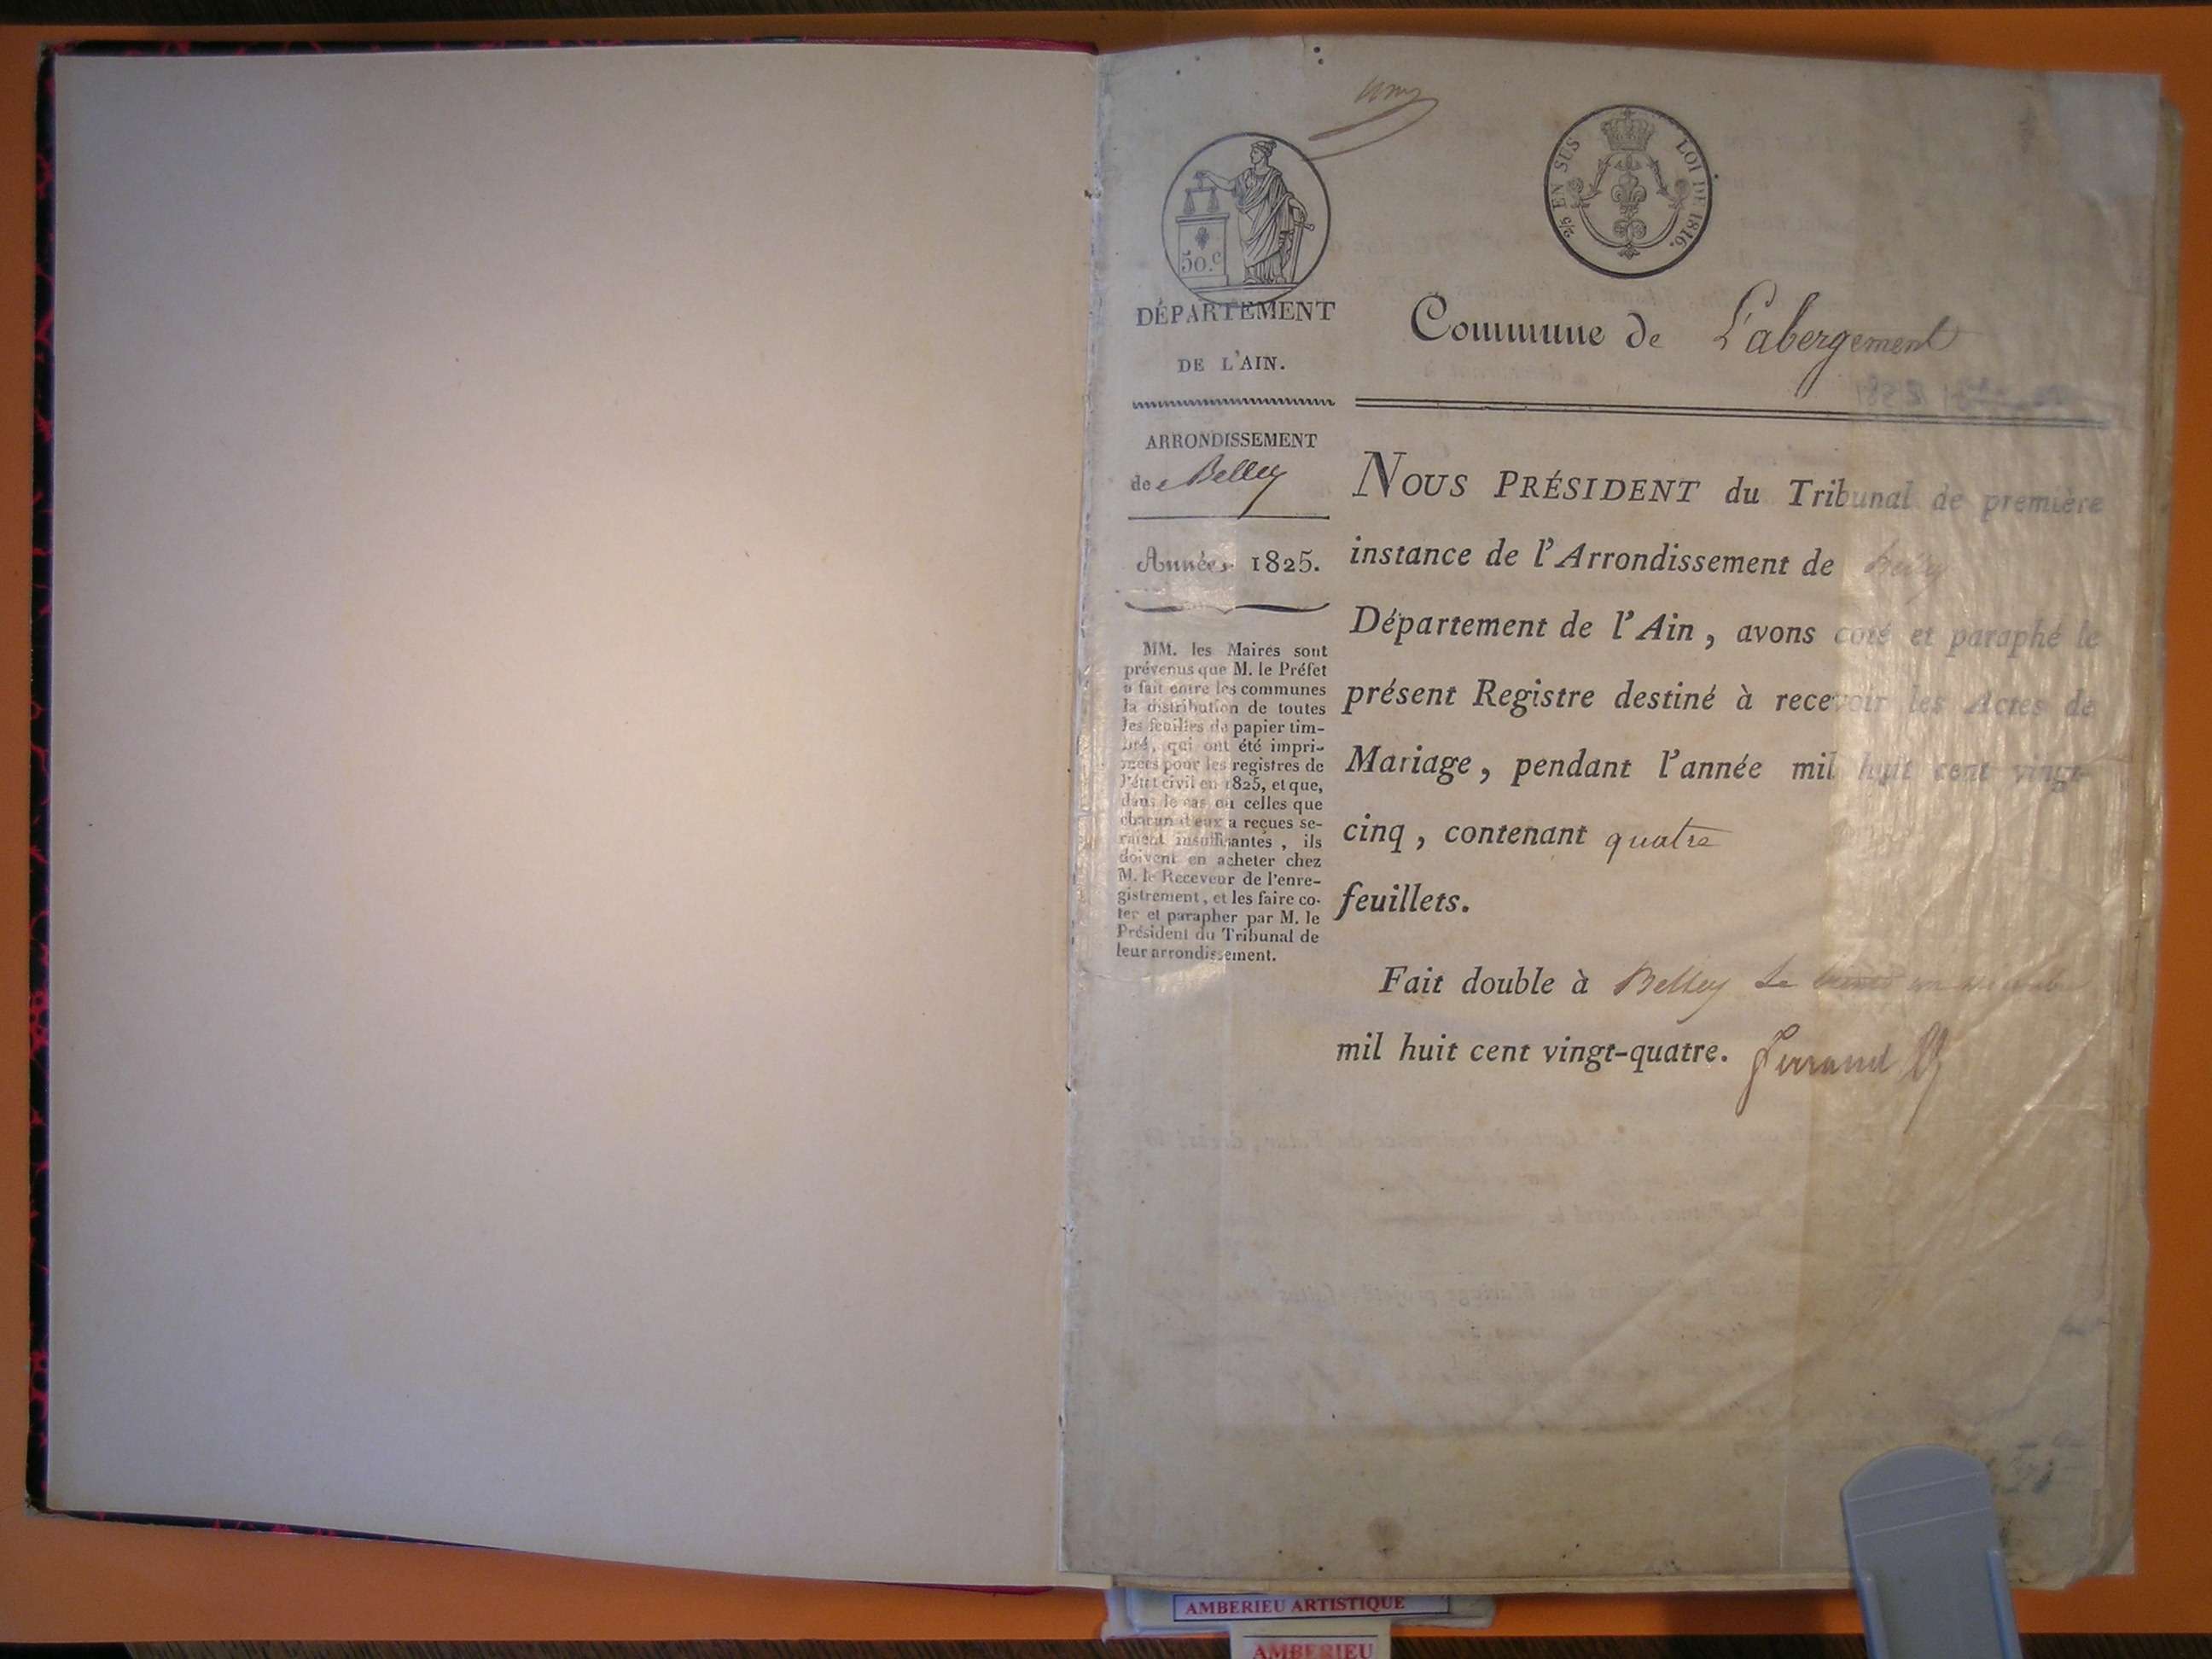 unz
50.c
5/c EN SUS LOI DE 1816.
DÉPARTEMENT
DE L'AIN.
Commune de L'abergement
ARRONDISSEMENT
de Belley
Année 1825.
MM. les Maires sont
prévenus que M. le Préfet
a fait entre les communes
la distribution de toutes
les feuilles de papier tim-
bré, qui ont été impri-
mées pour les registres de
l'état civil en 1825, et que,
dans le cas où celles que
chacun d'eux a reçues se-
raient insuffisantes, ils
doivent en acheter chez
M. le Receveur de l'enre-
gistrement, et les faire co-
ter et parapher par M. le
Président du Tribunal de
leur arrondissement.
NOUS PRÉSIDENT du Tribunal de première
instance de l'Arrondissement de Belley
Département de l'Ain, avons coté et paraphé le
présent Registre destiné à recevoir les Actes de
Mariage, pendant l'année mil huit cent vingt-
cinq, contenant quatre
feuillets.
Fait double à Belley Le
mil huit cent vingt-quatre. Ferrand
AMBERIEU ARTISTIQUE
AMBERIEU